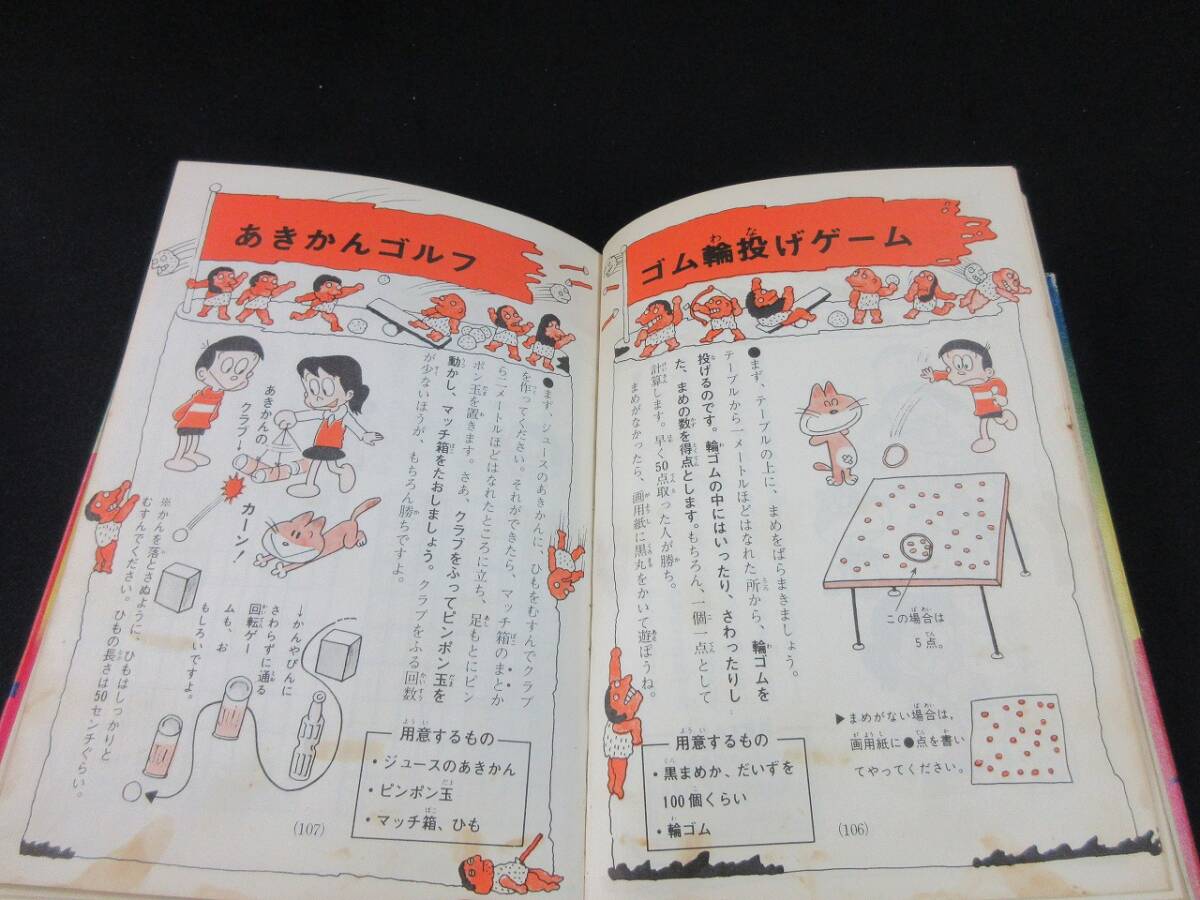 ゴム輪投げゲーム
●まず、テーブルの上に、まめをばらまきましょう。
テーブルから一メートルほどはなれた所から、輪ゴムを
投げるのです。輪ゴムの中にはいったり、さわったりし
た、まめの数を得点とします。もちろん、一個一点として
計算します。早く50点取った人が勝ち。
まめがなかったら、画用紙に黒丸をかいて遊ぼうね。
この場合は
5点。
▶まめがない場合は、
画用紙に●点を書い
てやってください。
用意するもの
・黒まめか、だいずを
100個くらい
・輪ゴム
(106)
あきかんゴルフ
●まず、ジュースのあきかんに、ひもをむすんでクラブ
を作ってください。それができたら、マッチ箱のまとか
ら二メートルほどはなれたところに立ち、足もとにピン
ポン玉を置きます。さあ、クラブをふってピンポン玉を
動かし、マッチ箱をたおしましょう。クラブをふる回数
が少ないほうが、もちろん勝ちですよ。
あきかんの
クラブ→
カーン!
※かんを落とさぬように、ひもはしっかりと
むすんでください。ひもの長さは50センチぐらい。
↓かんやびんに
さわらずに通る
回転ゲー
ムも、お
もしろいですよ。
用意するもの
・ジュースのあきかん
・ピンポン玉
・マッチ箱、ひも
(107)